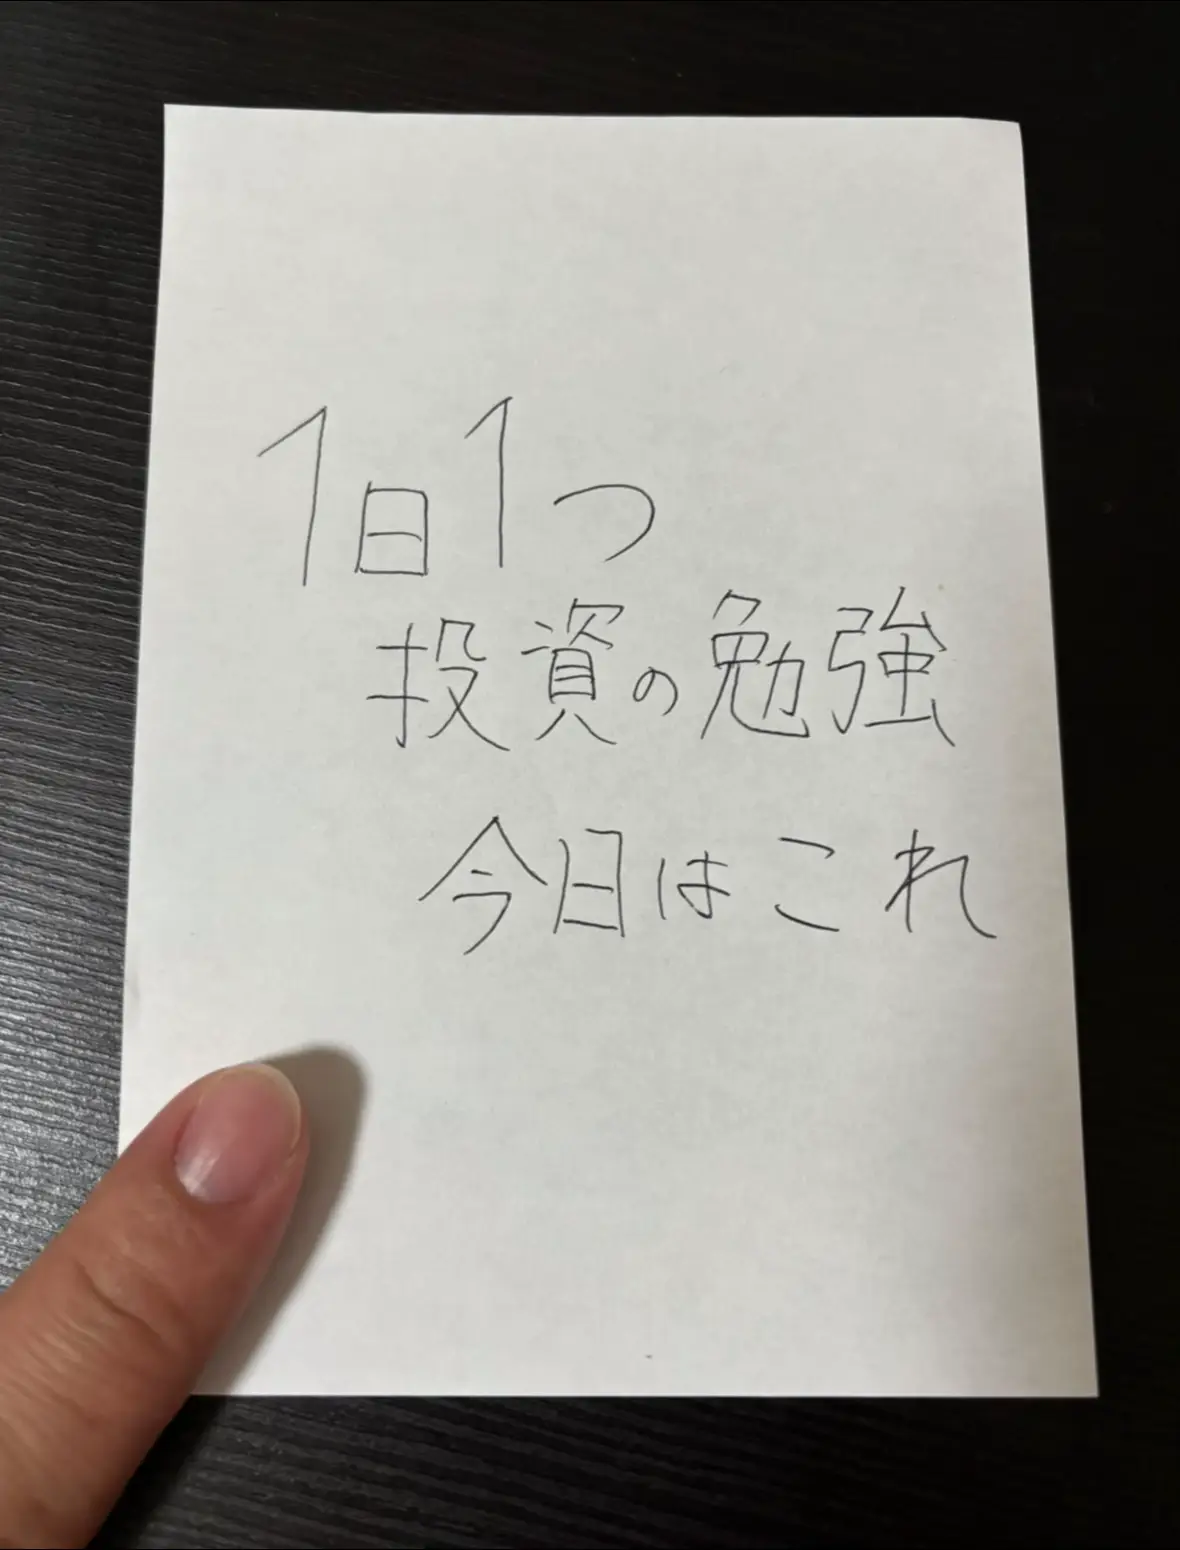 1日1つ
投資の勉強
今日はこれ